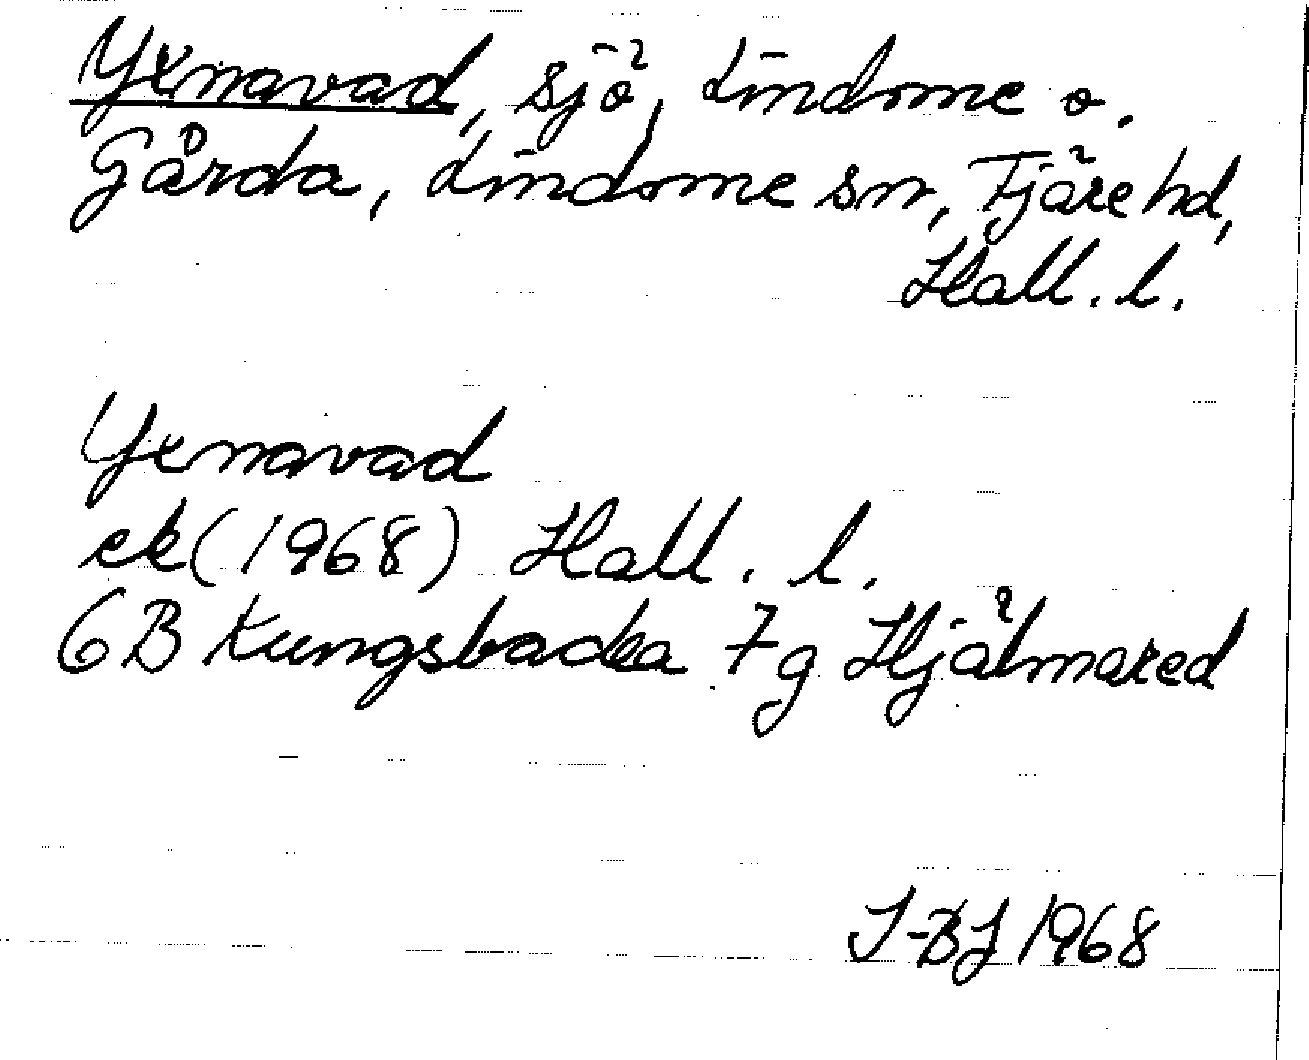 Yxnavad, sjö, Lindome o.
Gårda, Lindome sn, Fjäre hd,
Hall. l.
Yxnavad
ek (1968) Hall. l.
6B Kungsbacka 7g Hjälmared
I-BJ 1968